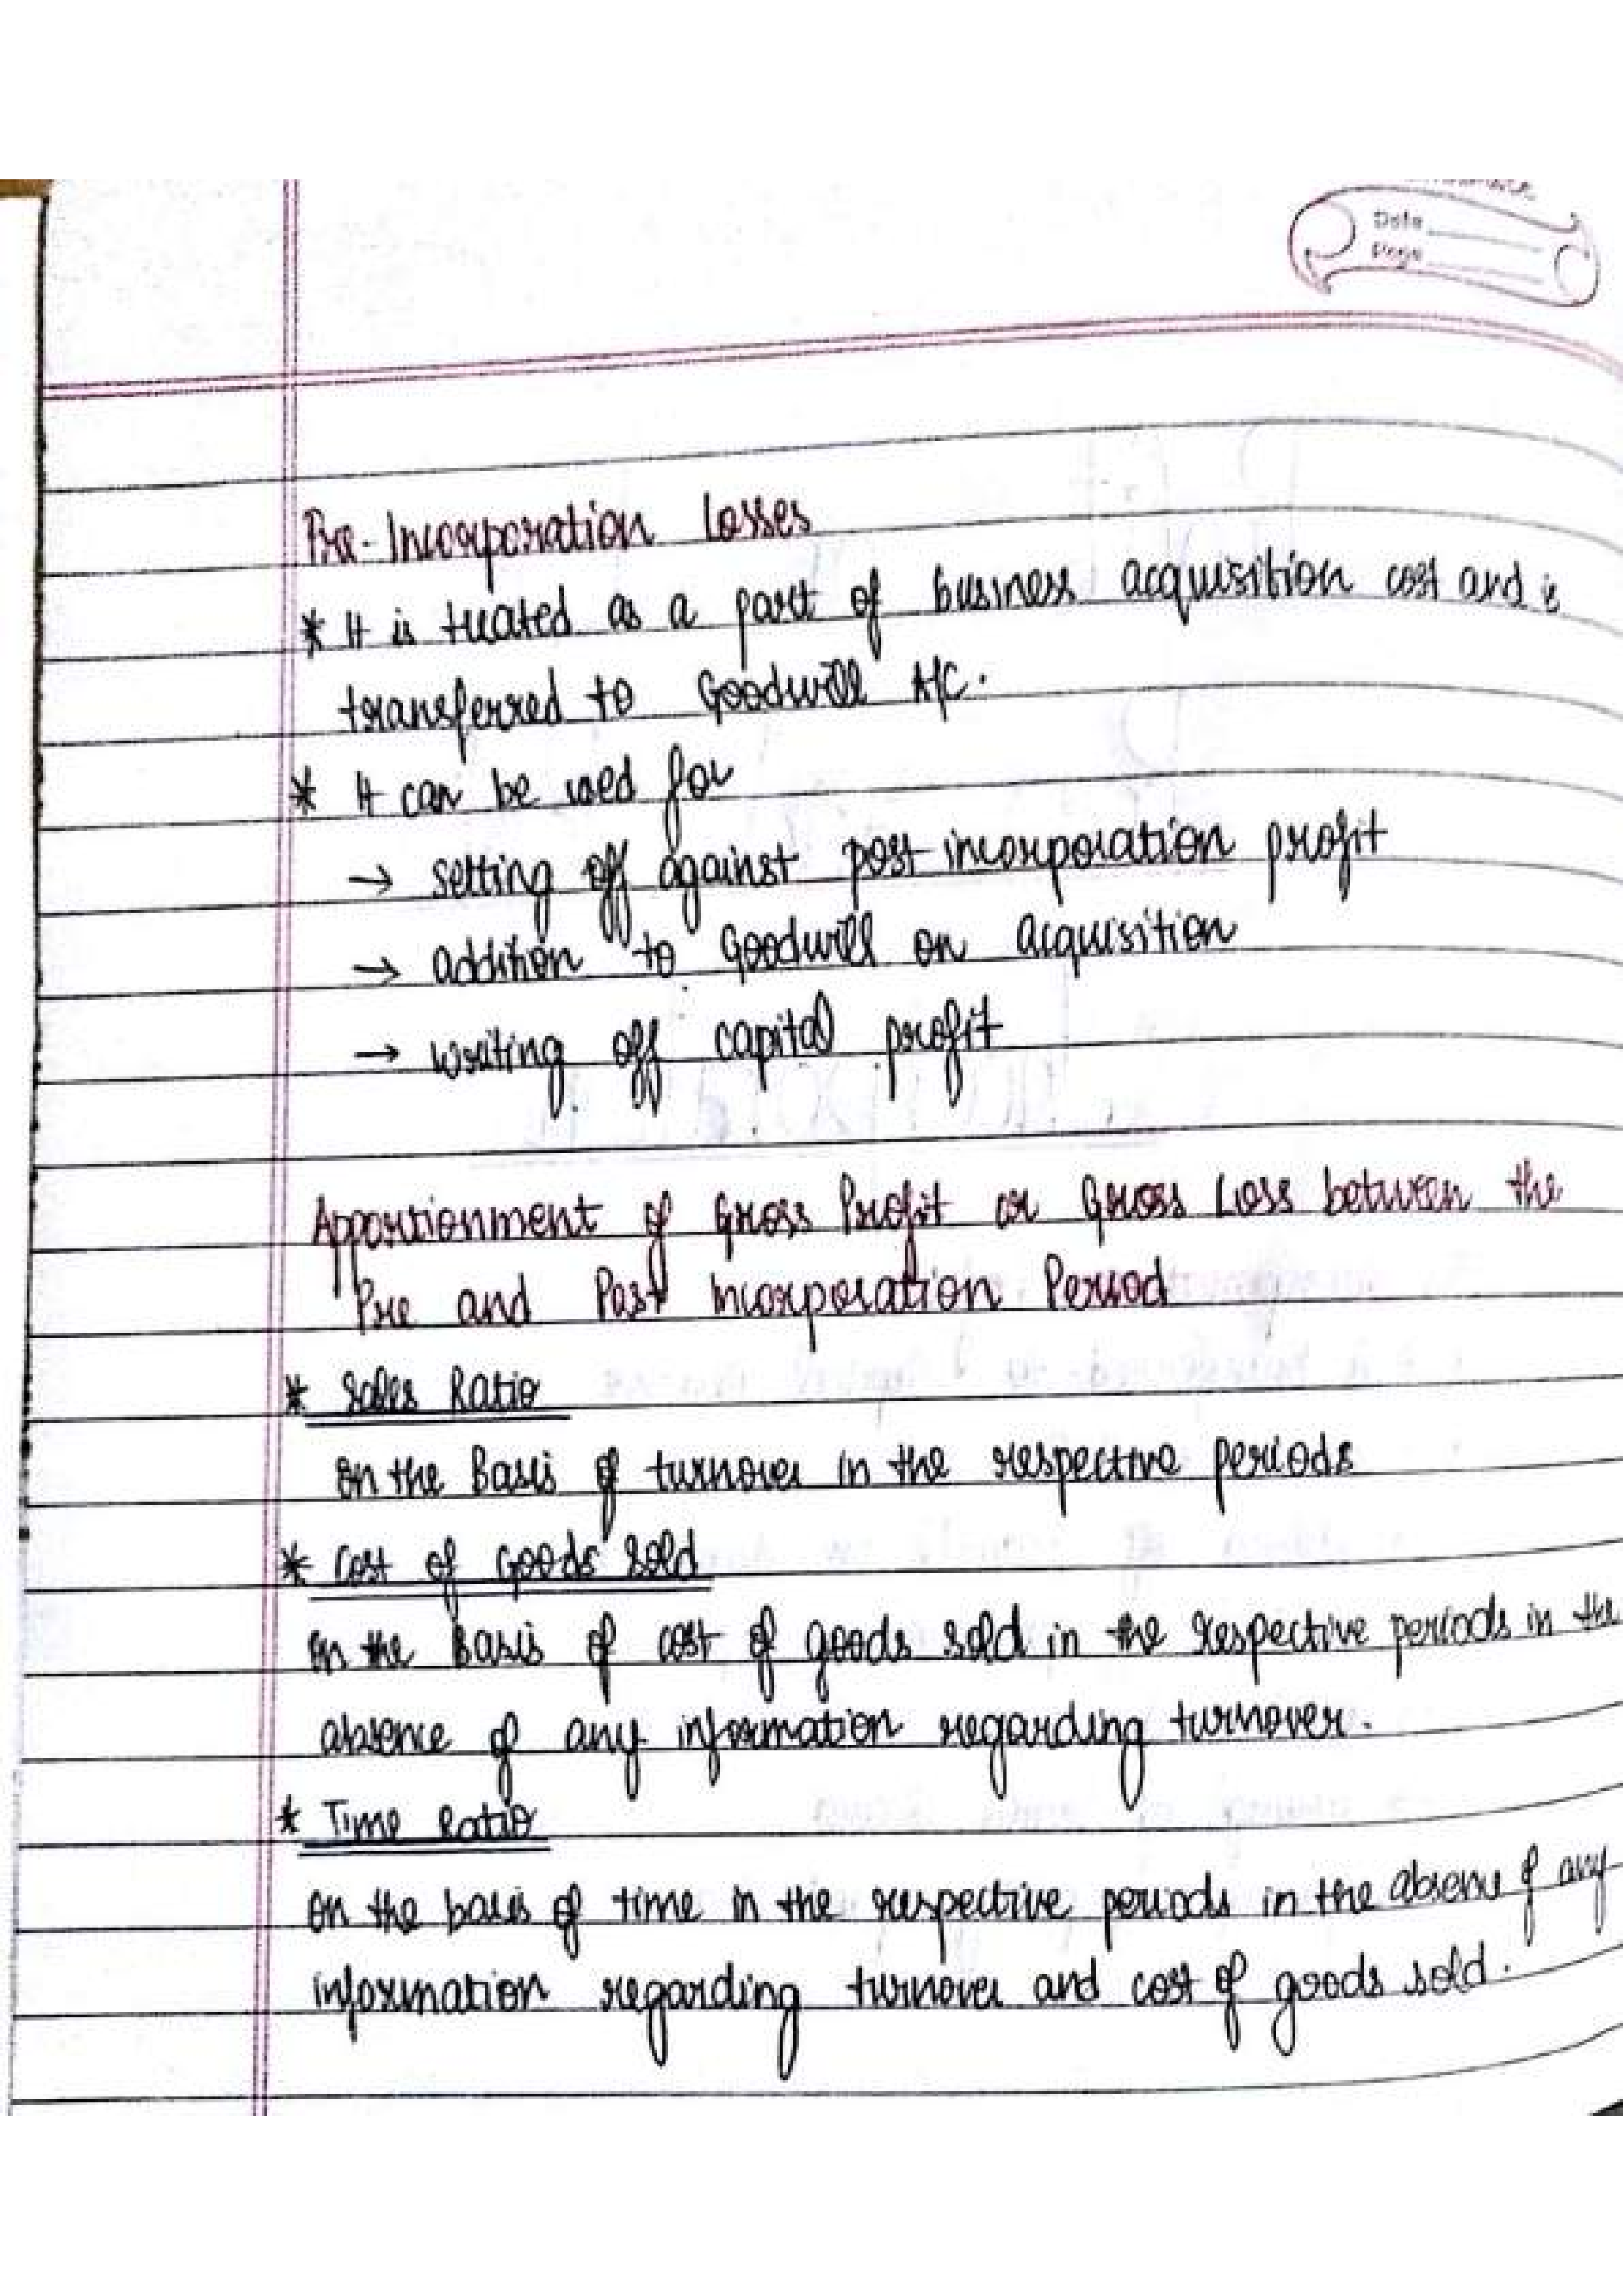 Date
Page
Pre-Incorporation Losses
* It is treated as a part of business acquisition cost and is
transferred to Goodwill A/C.
* It can be used for
→ setting off against post incorporation profit
→ addition to Goodwill on acquisition
→ writing off capital profit
Apportionment of Gross Profit or Gross Loss between the
Pre and Post Incorporation Period
* Sales Ratio
On the Basis of turnover in the respective periods
* Cost of Goods Sold
On the Basis of cost of goods sold in the respective periods in the
absence of any information regarding turnover.
* Time Ratio
On the basis of time in the respective periods in the absence of any
information regarding turnover and cost of goods sold.